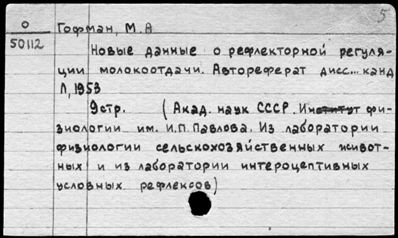 5
О
50112
Гофман, М.А
Новые данные о рефлекторной регуля-
ции молокоотдачи. Автореферат дисс... канд
Л, 1953
9стр. (Акад. наук СССР. Институт фи-
зиологии им. И.П. Павлова. Из лаборатории
физиологии сельскохозяйственных живот-
ных и из лаборатории интероцептивных
условных рефлексов)